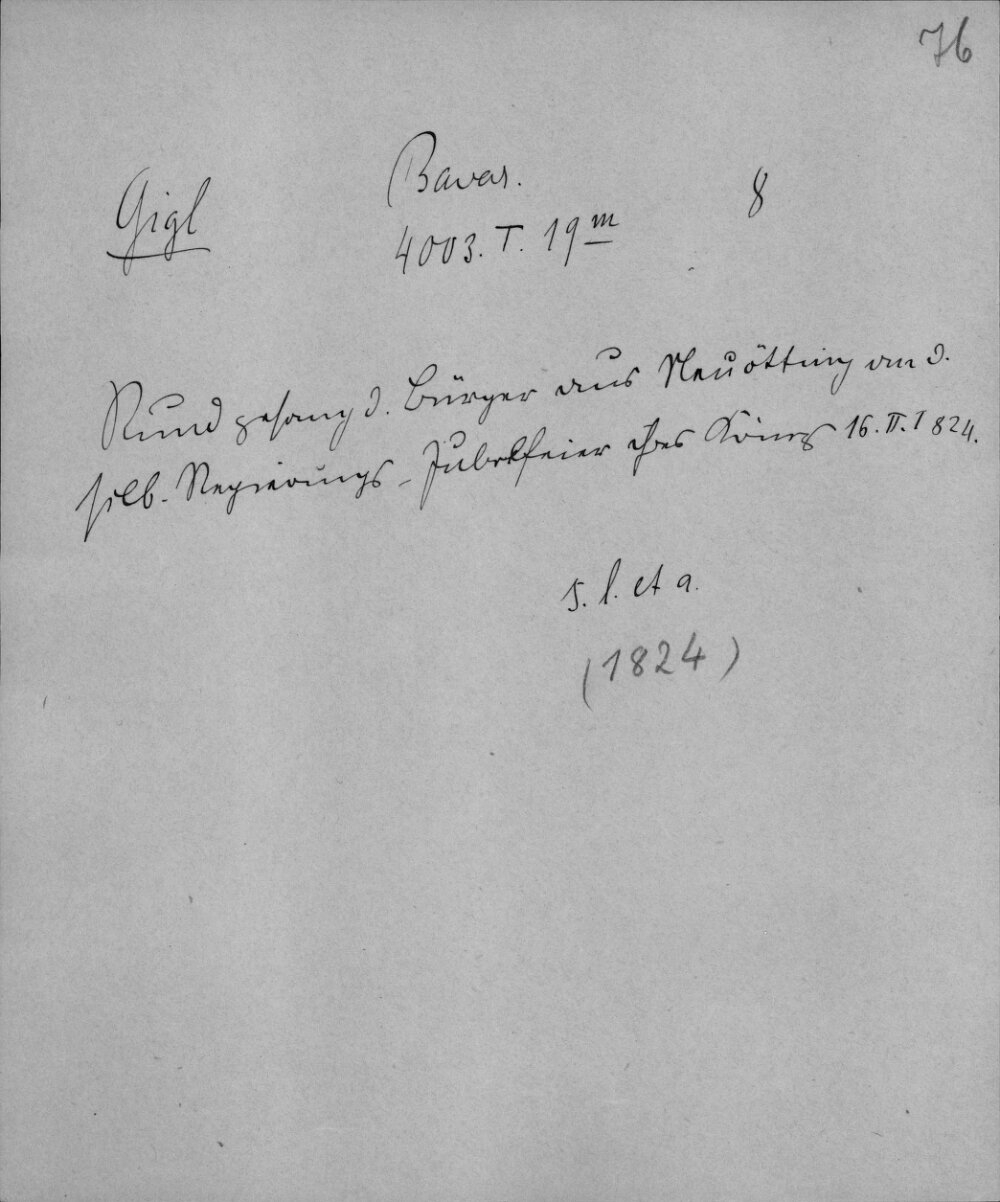 76
Gigl
Bavar.
8
4003. T. 19 m
Rundgesang d. Bürger aus Neuötting an d.
silb. Regierungs-Jubelfeier ihres Königs 16. II. 1824.
s. l. et a.
(1824)